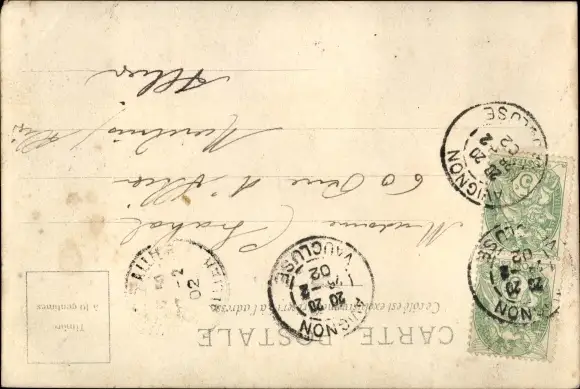 CARTE POSTALE
Ce côté est exclusivement réservé à l'adresse
Timbre
à 10 centimes
AVIGNON
20 2
02
VAUCLUSE
AVIGNON
20 2
02
VAUCLUSE
AVIGNON
02
ALLIER
-2
02
5
Madame Chabal
60 Rue d'Allier
Moulins s/ Allier
Allier